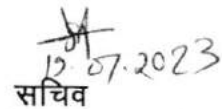 12.07.2023
सचिव